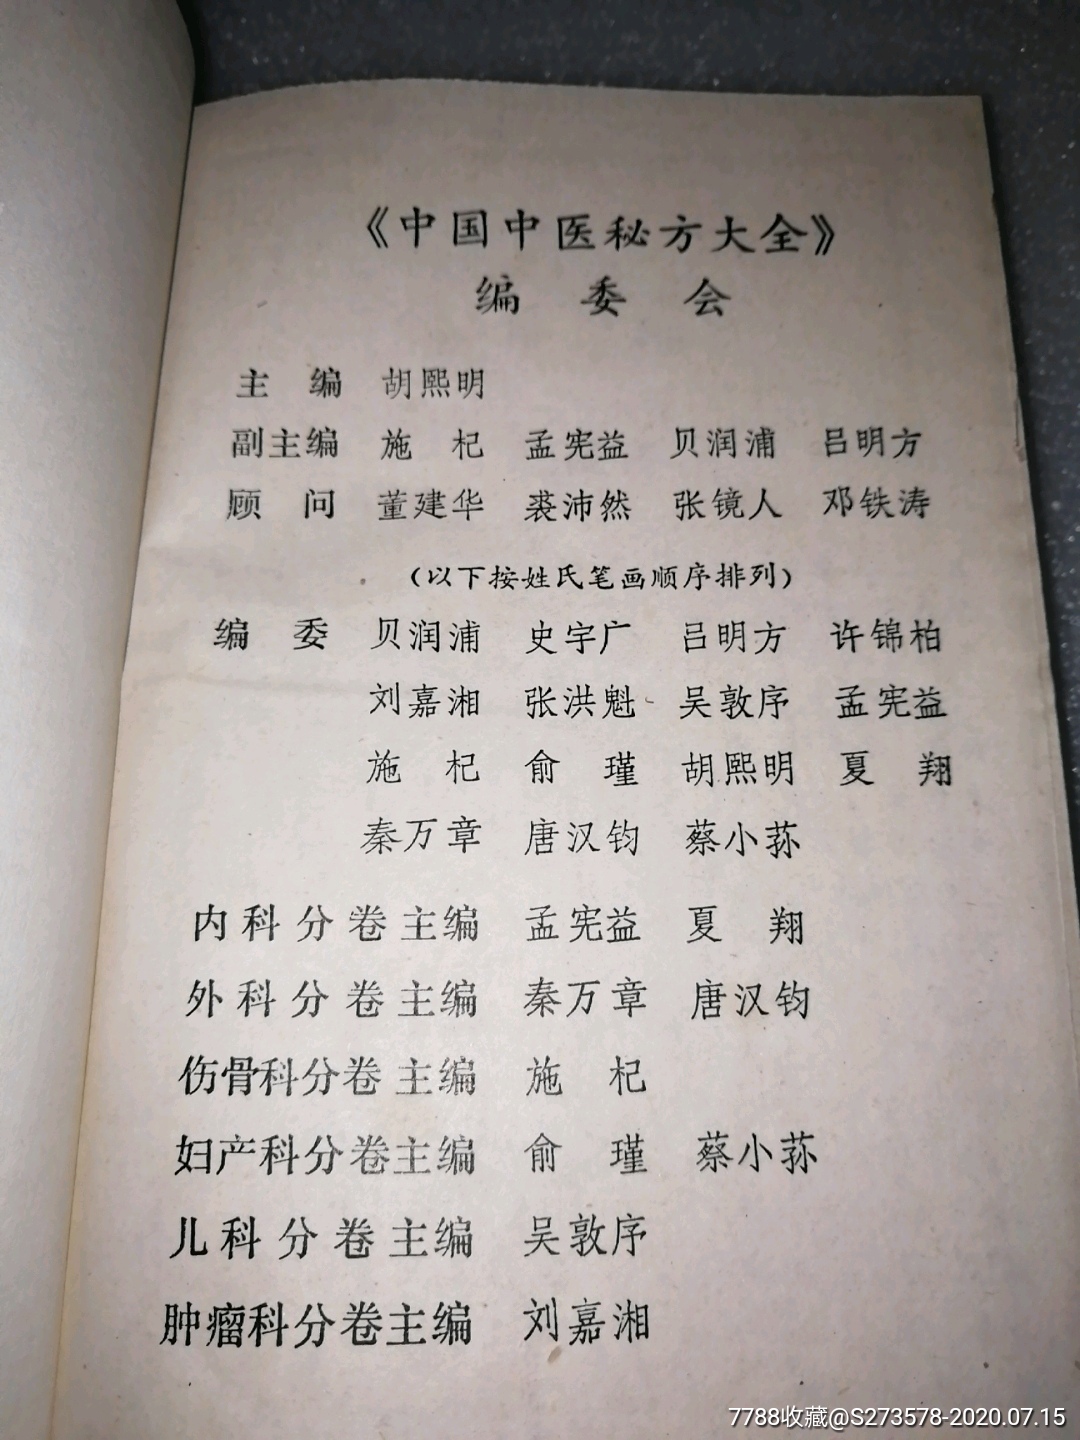 《中国中医秘方大全》
编 委 会
主 编 胡熙明
副主编 施 杞 孟宪益 贝润浦 吕明方
顾 问 董建华 裘沛然 张镜人 邓铁涛
(以下按姓氏笔画顺序排列)
编 委 贝润浦 史宇广 吕明方 许锦柏
刘嘉湘 张洪魁 吴敦序 孟宪益
施 杞 俞 瑾 胡熙明 夏 翔
秦万章 唐汉钧 蔡小荪
内科分卷主编 孟宪益 夏 翔
外科分卷主编 秦万章 唐汉钧
伤骨科分卷主编 施 杞
妇产科分卷主编 俞 瑾 蔡小荪
儿科分卷主编 吴敦序
肿瘤科分卷主编 刘嘉湘
7788收藏@S273578-2020.07.15